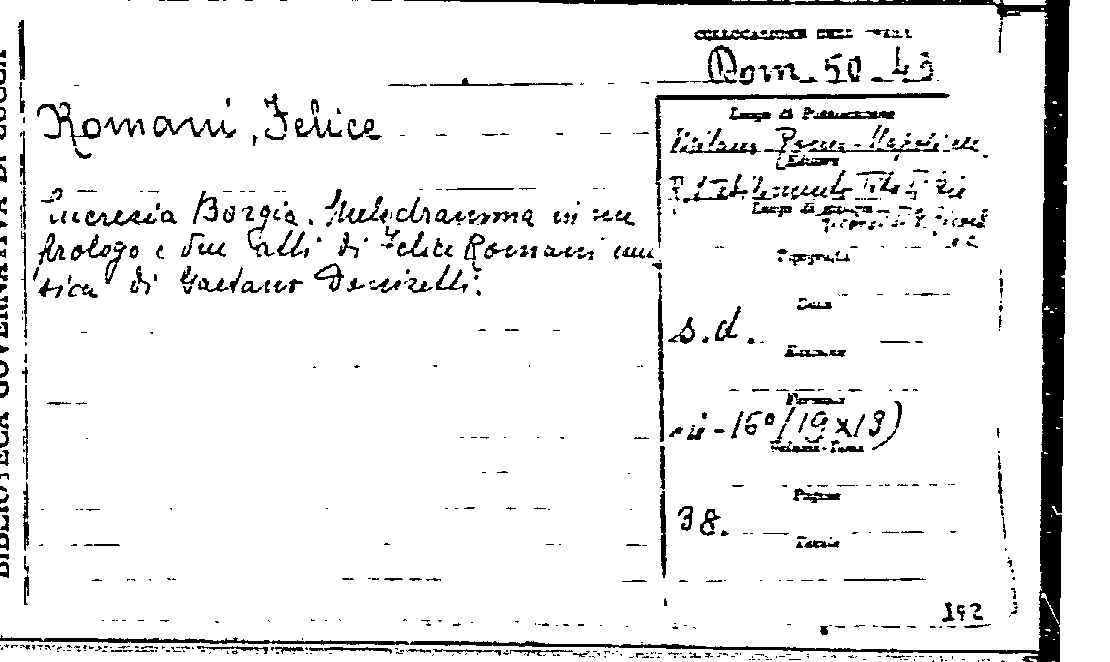 BIBLIOTECA GOVERNATIVA DI LUCCA
COLLOCAZIONE DELL'
Rom. 50. 43
Romani, Felice
Luogo di Pubblicazione
Milano - Roma - Napoli ecc.
Editore
R. Stabilimento Tito di Gio.
Luogo di stampa
Ricordi
Lucrezia Borgia. Melodramma in un
prologo e due atti di Felice Romani mu-
sica di Gaetano Donizetti.
Tipografia
Data
s.d.
Edizione
Formato
in-16° (19x13)
Volumi-Tomi
Pagine
38.
Tavole
192